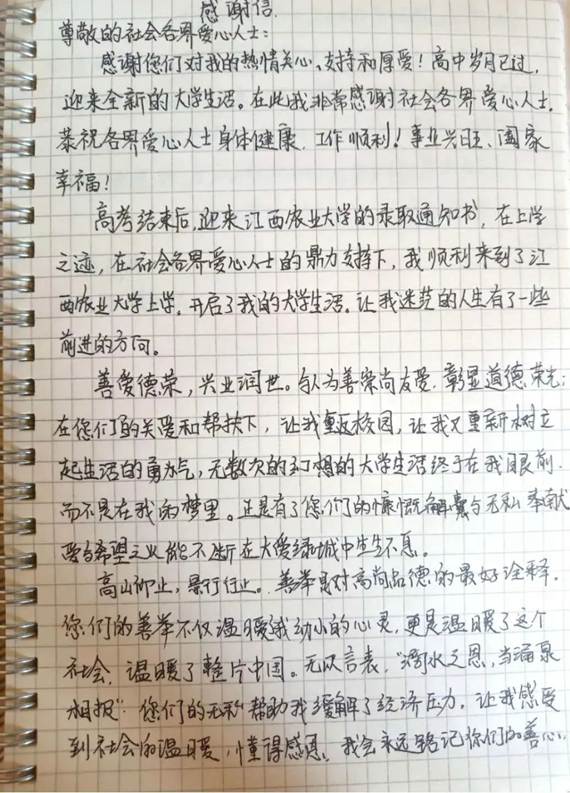 感谢信
尊敬的社会各界爱心人士:
感谢您们对我的热情关心、支持和厚爱!高中岁月已过,
迎来全新的大学生活。在此我非常感谢社会各界爱心人士,
恭祝各界爱心人士身体健康,工作顺利!事业兴旺、阖家
幸福!
高考结束后,迎来江西农业大学的录取通知书,在上学
之迹,在社会各界爱心人士的鼎力支持下,我顺利来到了江
西农业大学上学,开启了我的大学生活。让我迷茫的人生有了一些
前进的方向。
善爱德荣,兴业润世。与人为善崇尚友爱,彰显道德荣光;
在您们的关爱和帮扶下,让我重返校园,让我又重新树立
起生活的勇气,无数次的幻想的大学生活终于在我眼前,
而不是在我的梦里。正是有了您们的慷慨解囊与无私奉献
爱与希望之火能不断在大爱绿城中生生不息。
高山仰止,景行行止。善举是对高尚品德的最好诠释,
您们的善举不仅温暖我幼小的心灵,更是温暖了这个
社会,温暖了整片中国。无以言表,"滴水之恩,当涌泉
相报",您们的无私帮助我缓解了经济压力,让我感受
到社会的温暖,懂得感恩。我会永远铭记你们的善心,